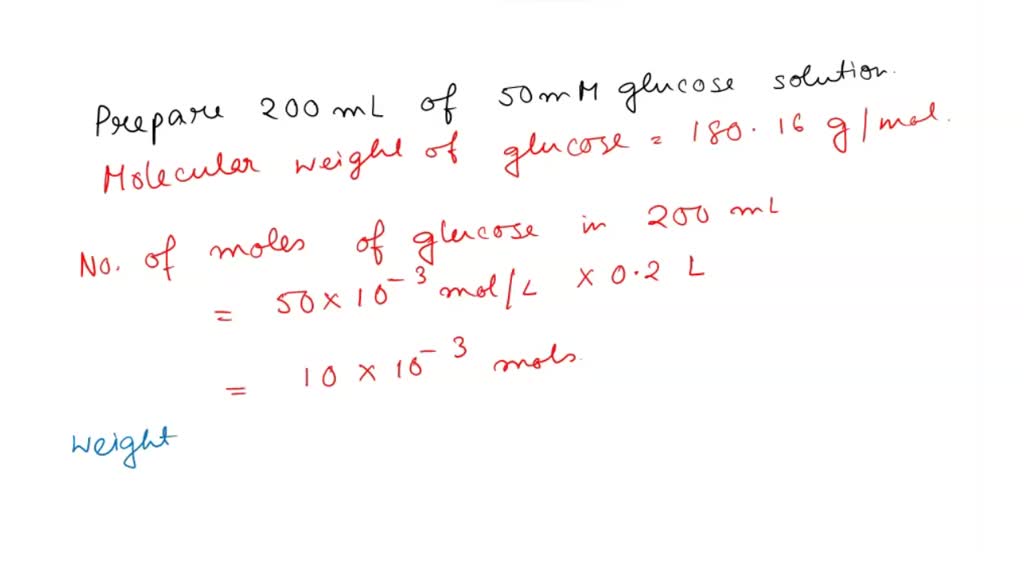 Prepare 200 mL of 50mM glucose solution.
Molecular weight of glucose = 180.16 g/mol.
No. of moles of glucose in 200 mL
= 50 × 10⁻³ mol/L × 0.2 L
= 10 × 10⁻³ mols.
Weight